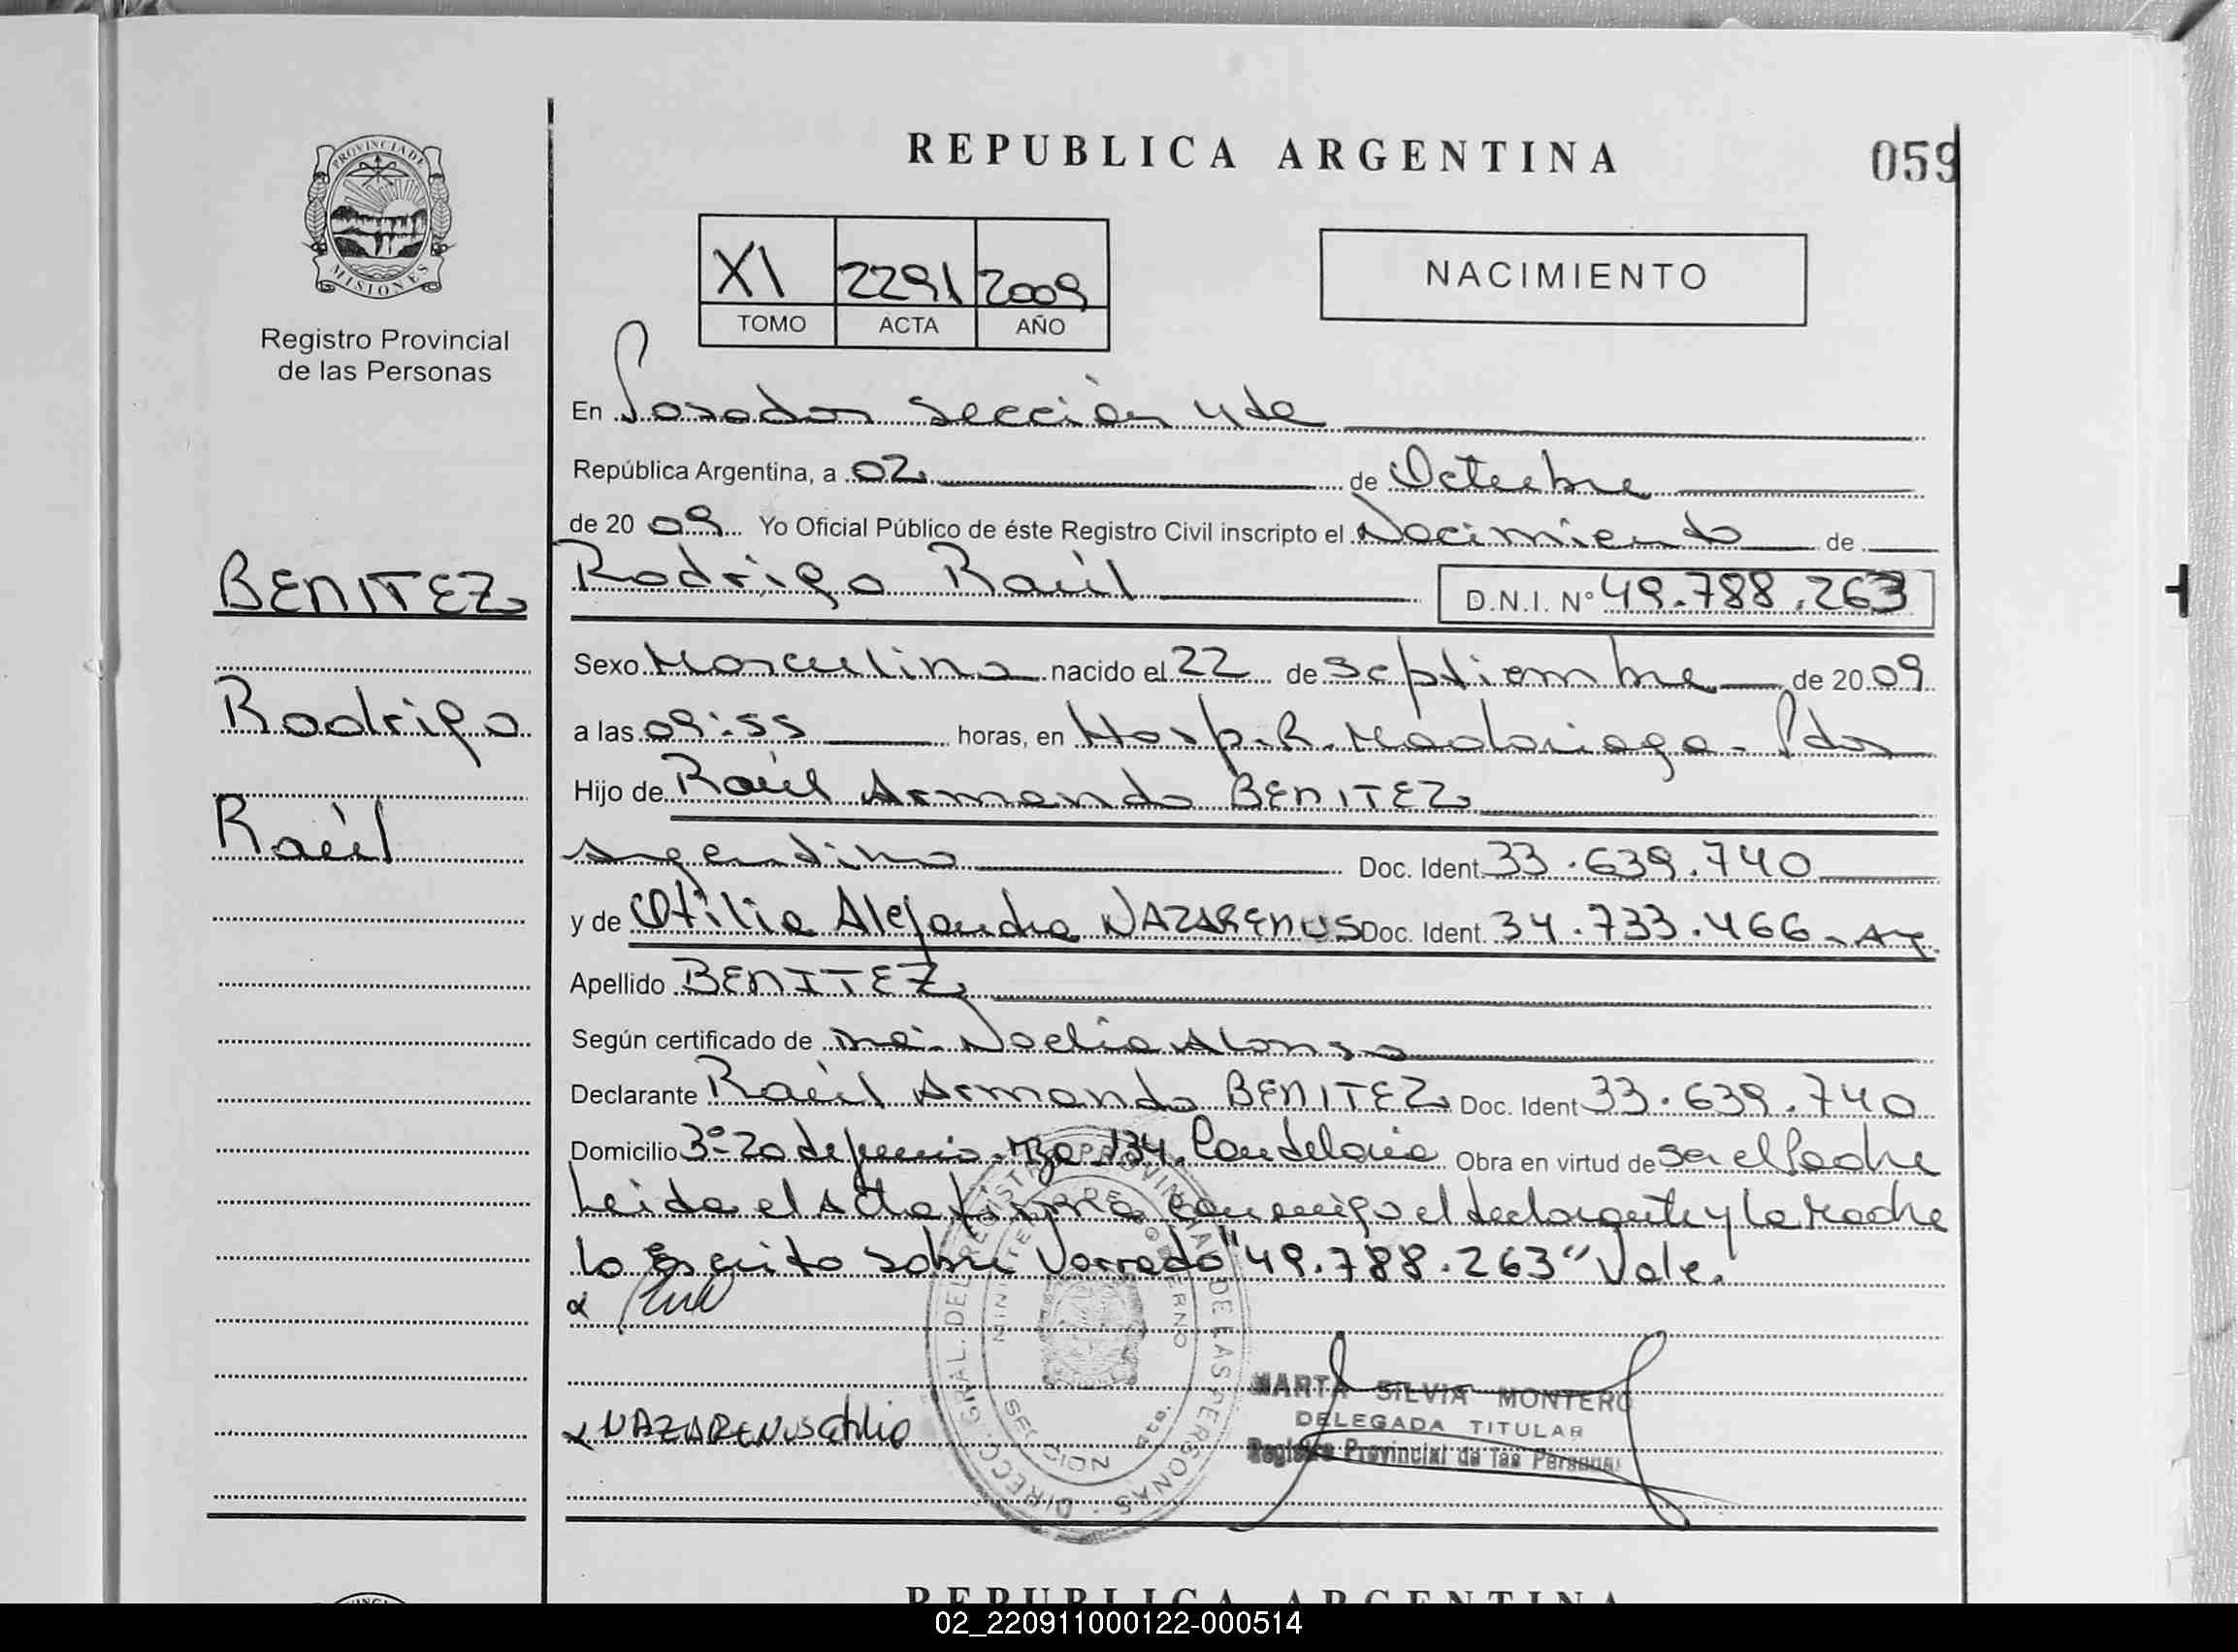 REPUBLICA ARGENTINA
059
PROVINCIA DE
MISIONES
Registro Provincial
de las Personas
XI 2291 2009
TOMO ACTA AÑO
NACIMIENTO
En Posadas Sección 4ta
República Argentina, a 02 de Octubre
de 20 09 Yo Oficial Público de éste Registro Civil inscripto el Nacimiento de
BENITEZ
Rodrigo
Raúl
Rodrigo Raúl D.N.I. N° 49.788.263
Sexo Masculino nacido el 22 de Septiembre de 20 09
a las 09:55 horas, en Hosp. R. Madariaga - Pdas
Hijo de Raúl Armando BENITEZ
Argentino Doc. Ident. 33.639.740
y de Otilia Alejandra NAZARENUS Doc. Ident. 34.733.466 - Arg.
Apellido BENITEZ
Según certificado de Noelia Alonso
Declarante Raúl Armando BENITEZ Doc. Ident 33.639.740
Domicilio 3° 20 de junio - Mza 134. Candelaria Obra en virtud de Ser el Padre
Leida el Acta firma conmigo el declarante y la Madre
Lo Escrito sobre Borrado "49.788.263" Vale.
NAZARENUS Otilia
DIRECC. GRAL. DEL REGISTRO PROVINCIAL DE LAS PERSONAS
MINISTERIO DE GOBIERNO
SECCION
MARTA SILVIA MONTERO
DELEGADA TITULAR
Registro Provincial de las Personas
REPUBLICA ARGENTINA
02_220911000122-000514